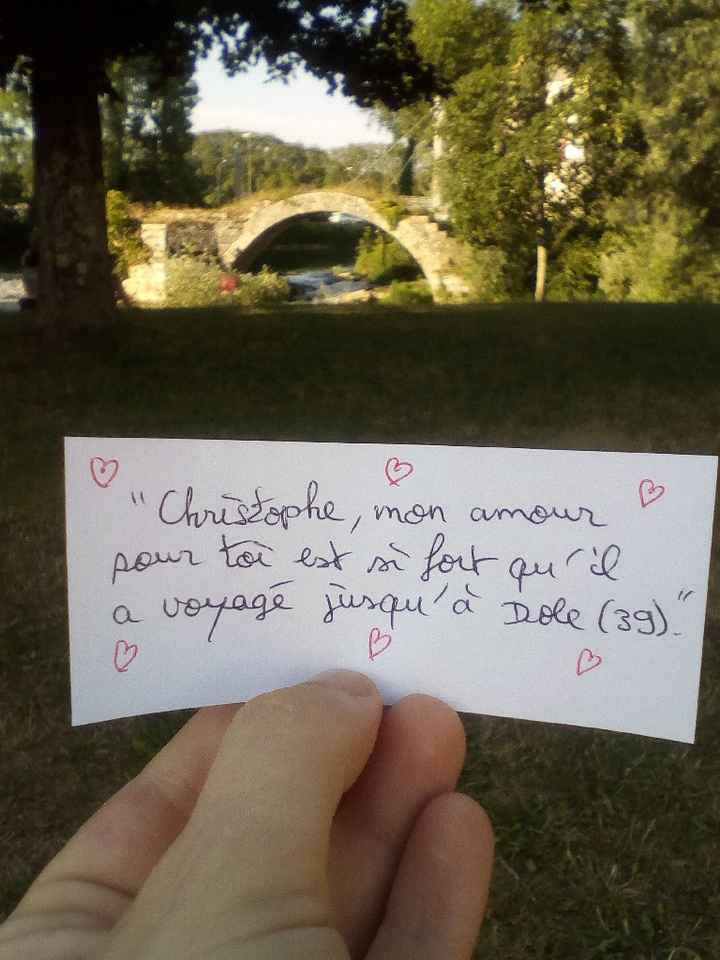 "Christophe, mon amour
pour toi est si fort qu'il
a voyagé jusqu'à Dole (39)."